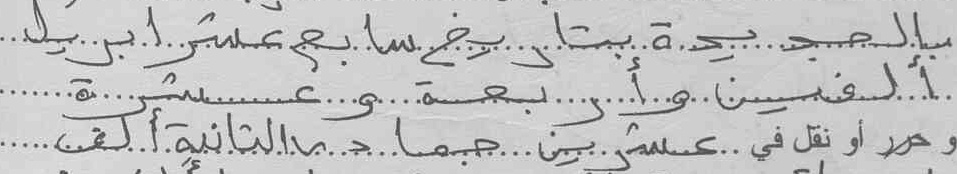 بالجديدة بتاريخ سابع عشر ابريل
ألفين وأربعة وعشرة
وحرر أو نقل في عشرين جمادى الثانية ألف